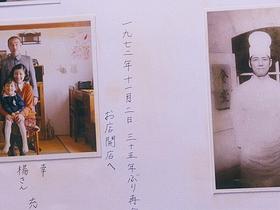 一九七二年十一月二日 三十五年ぶり再
お店開店へ
幸
楊さん